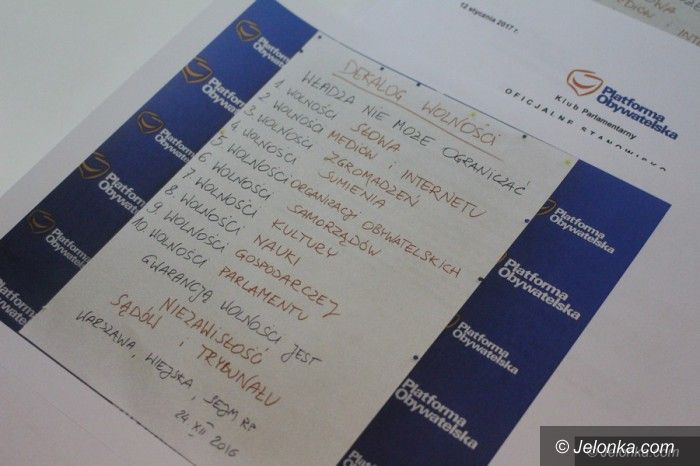 12 stycznia 2017 r.
Platforma
Obywatelska
Klub Parlamentarny
OFICJALNE STANOWISKO
DEKALOG WOLNOŚCI
WŁADZA NIE MOŻE OGRANICZAĆ
1 WOLNOŚCI SŁOWA
2 WOLNOŚCI MEDIÓW i INTERNETU
3. WOLNOŚCI ZGROMADZEŃ
4 WOLNOŚCI SUMIENIA
5 WOLNOŚCI ORGANIZACJI OBYWATELSKICH
6 WOLNOŚCI SAMORZĄDÓW
7 WOLNOŚCI KULTURY
8 WOLNOŚCI NAUKI
9 WOLNOŚCI GOSPODARCZEJ
10 WOLNOŚCI PARLAMENTU
GWARANCJĄ WOLNOŚCI JEST
NIEZAWISŁOŚĆ
SĄDÓW i TRYBUNAŁU
WARSZAWA, WIEJSKA, SEJM RP
24 XII 2016
Platforma
Obywatelska
Platforma
Obywatelska
Platforma
Obywatelska
Platforma
Obywatelska
Platforma
Obywatelska
Platforma
Obywatelska
Platforma
Obywatelska
Platforma
Obywatelska
Platforma
Obywatelska
© Jelonka.com